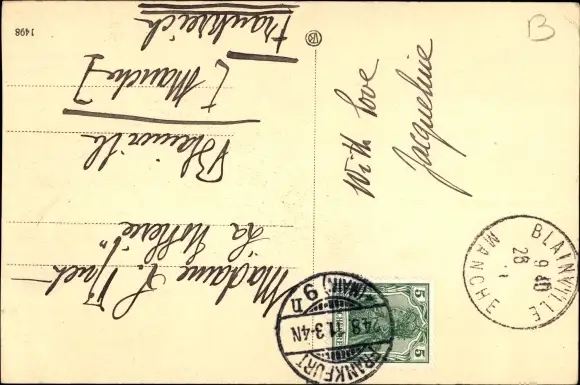 With love
Jacqueline
Madame
La
Blainville
[Manche]
Frankreich
1498
B
FRANKFURT
(MAIN) 9
24.8.11.3-4N
5
5
BLAINVILLE
9 40
28 -1
MANCHE